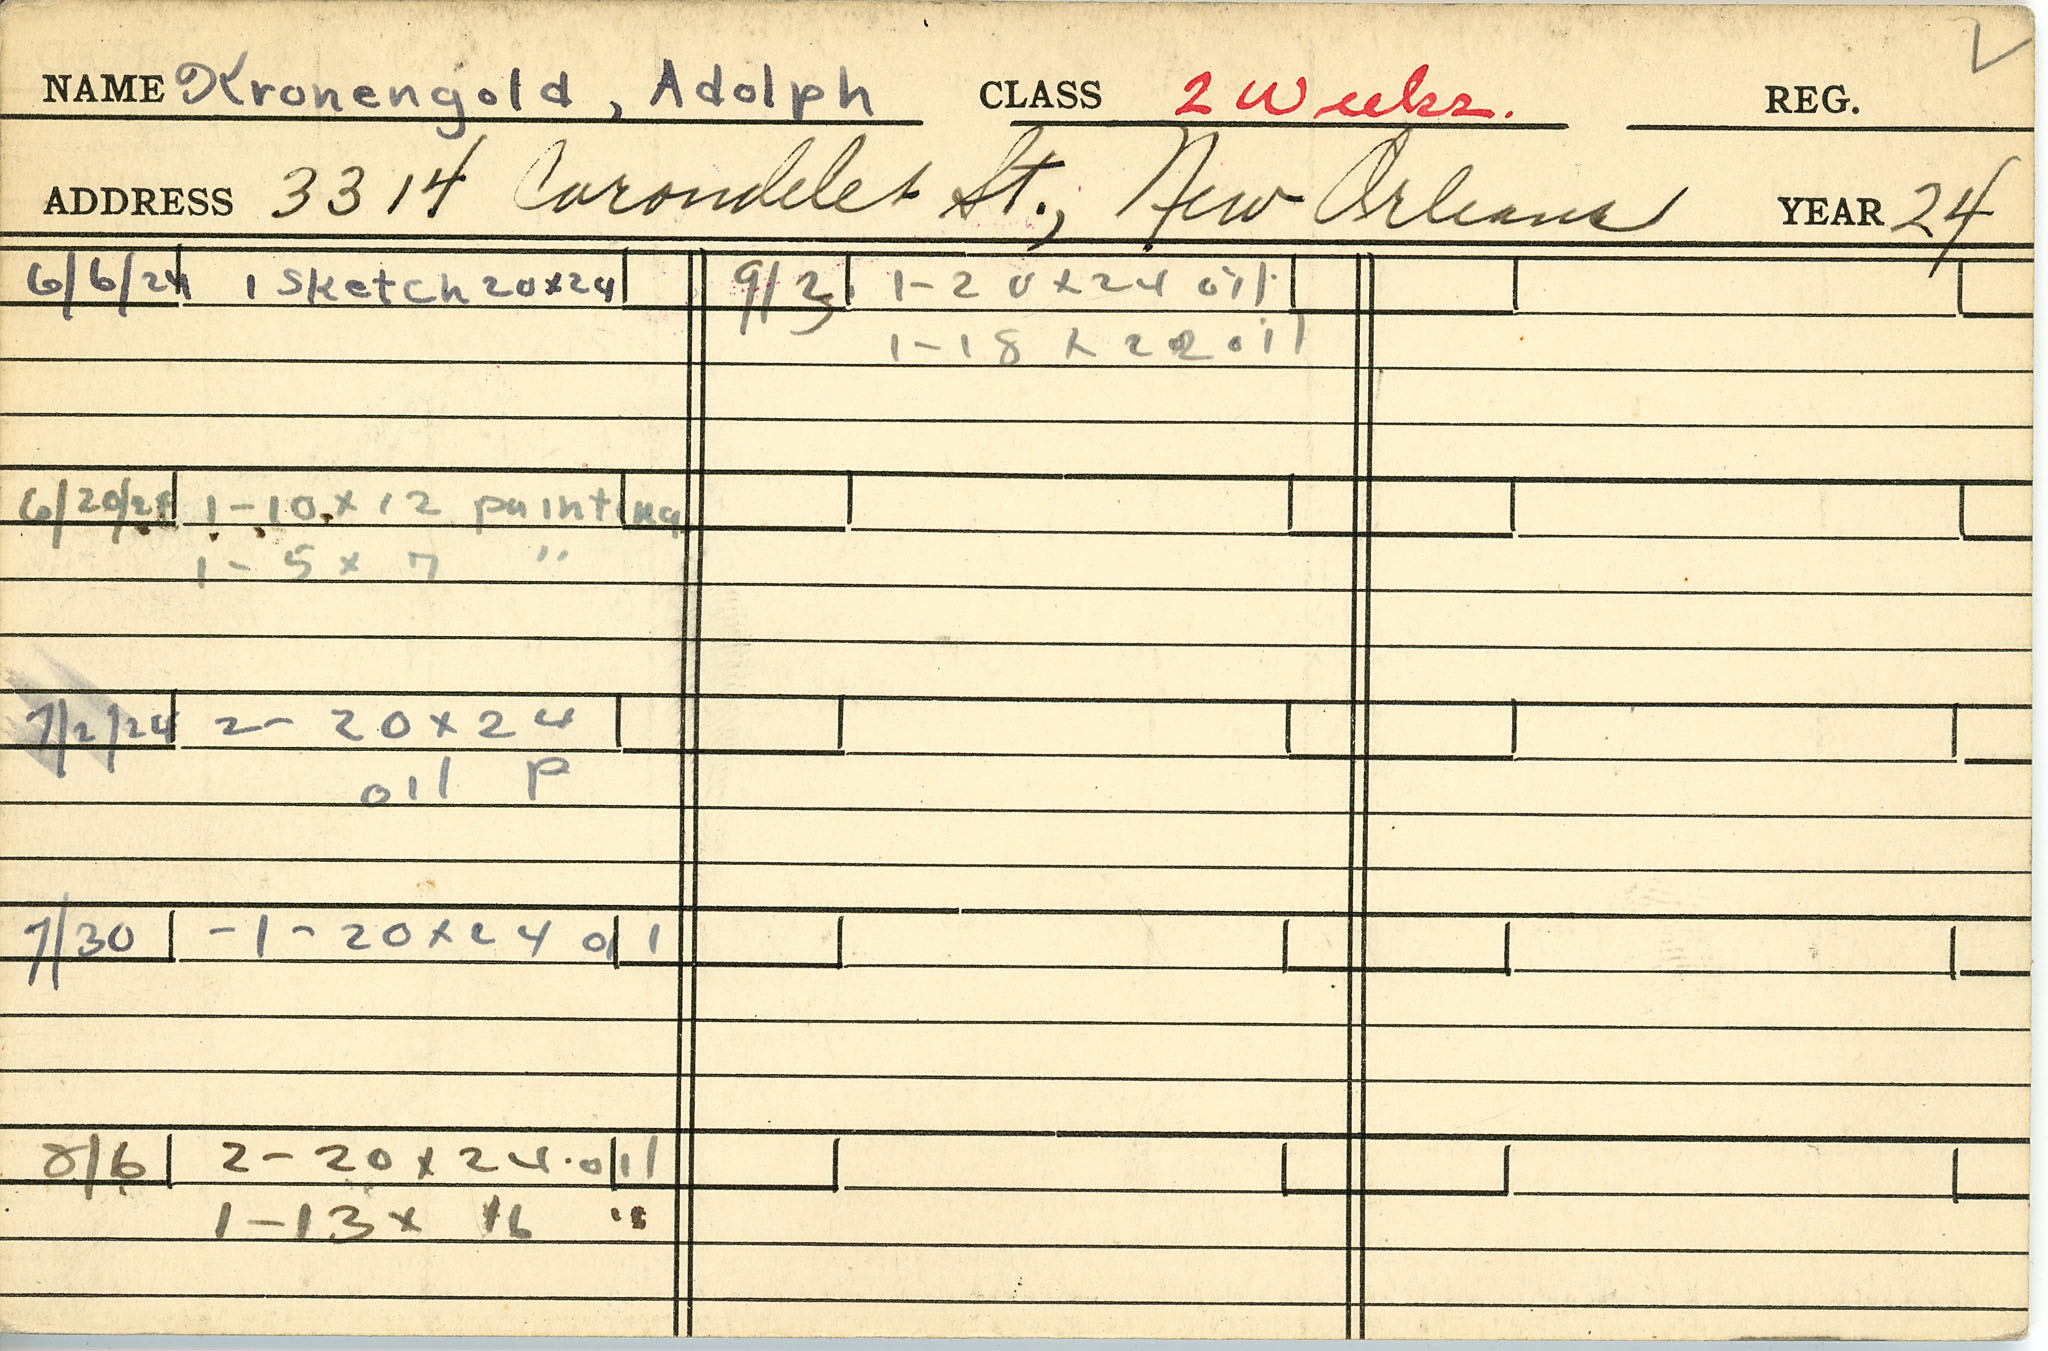 NAME Kronengold, Adolph CLASS 2 Weeks. REG.
ADDRESS 3314 Carondelet St., New Orleans YEAR 24
6/6/24 1 Sketch 20x24
6/20/24 1-10x12 painting
1-5x7 "
7/2/24 2-20x24
oil P
7/30 -1-20x24 oil
8/6 2-20x24.oil
1-13x16 "
9/3 1-20x24 oil
1-18x22 oil